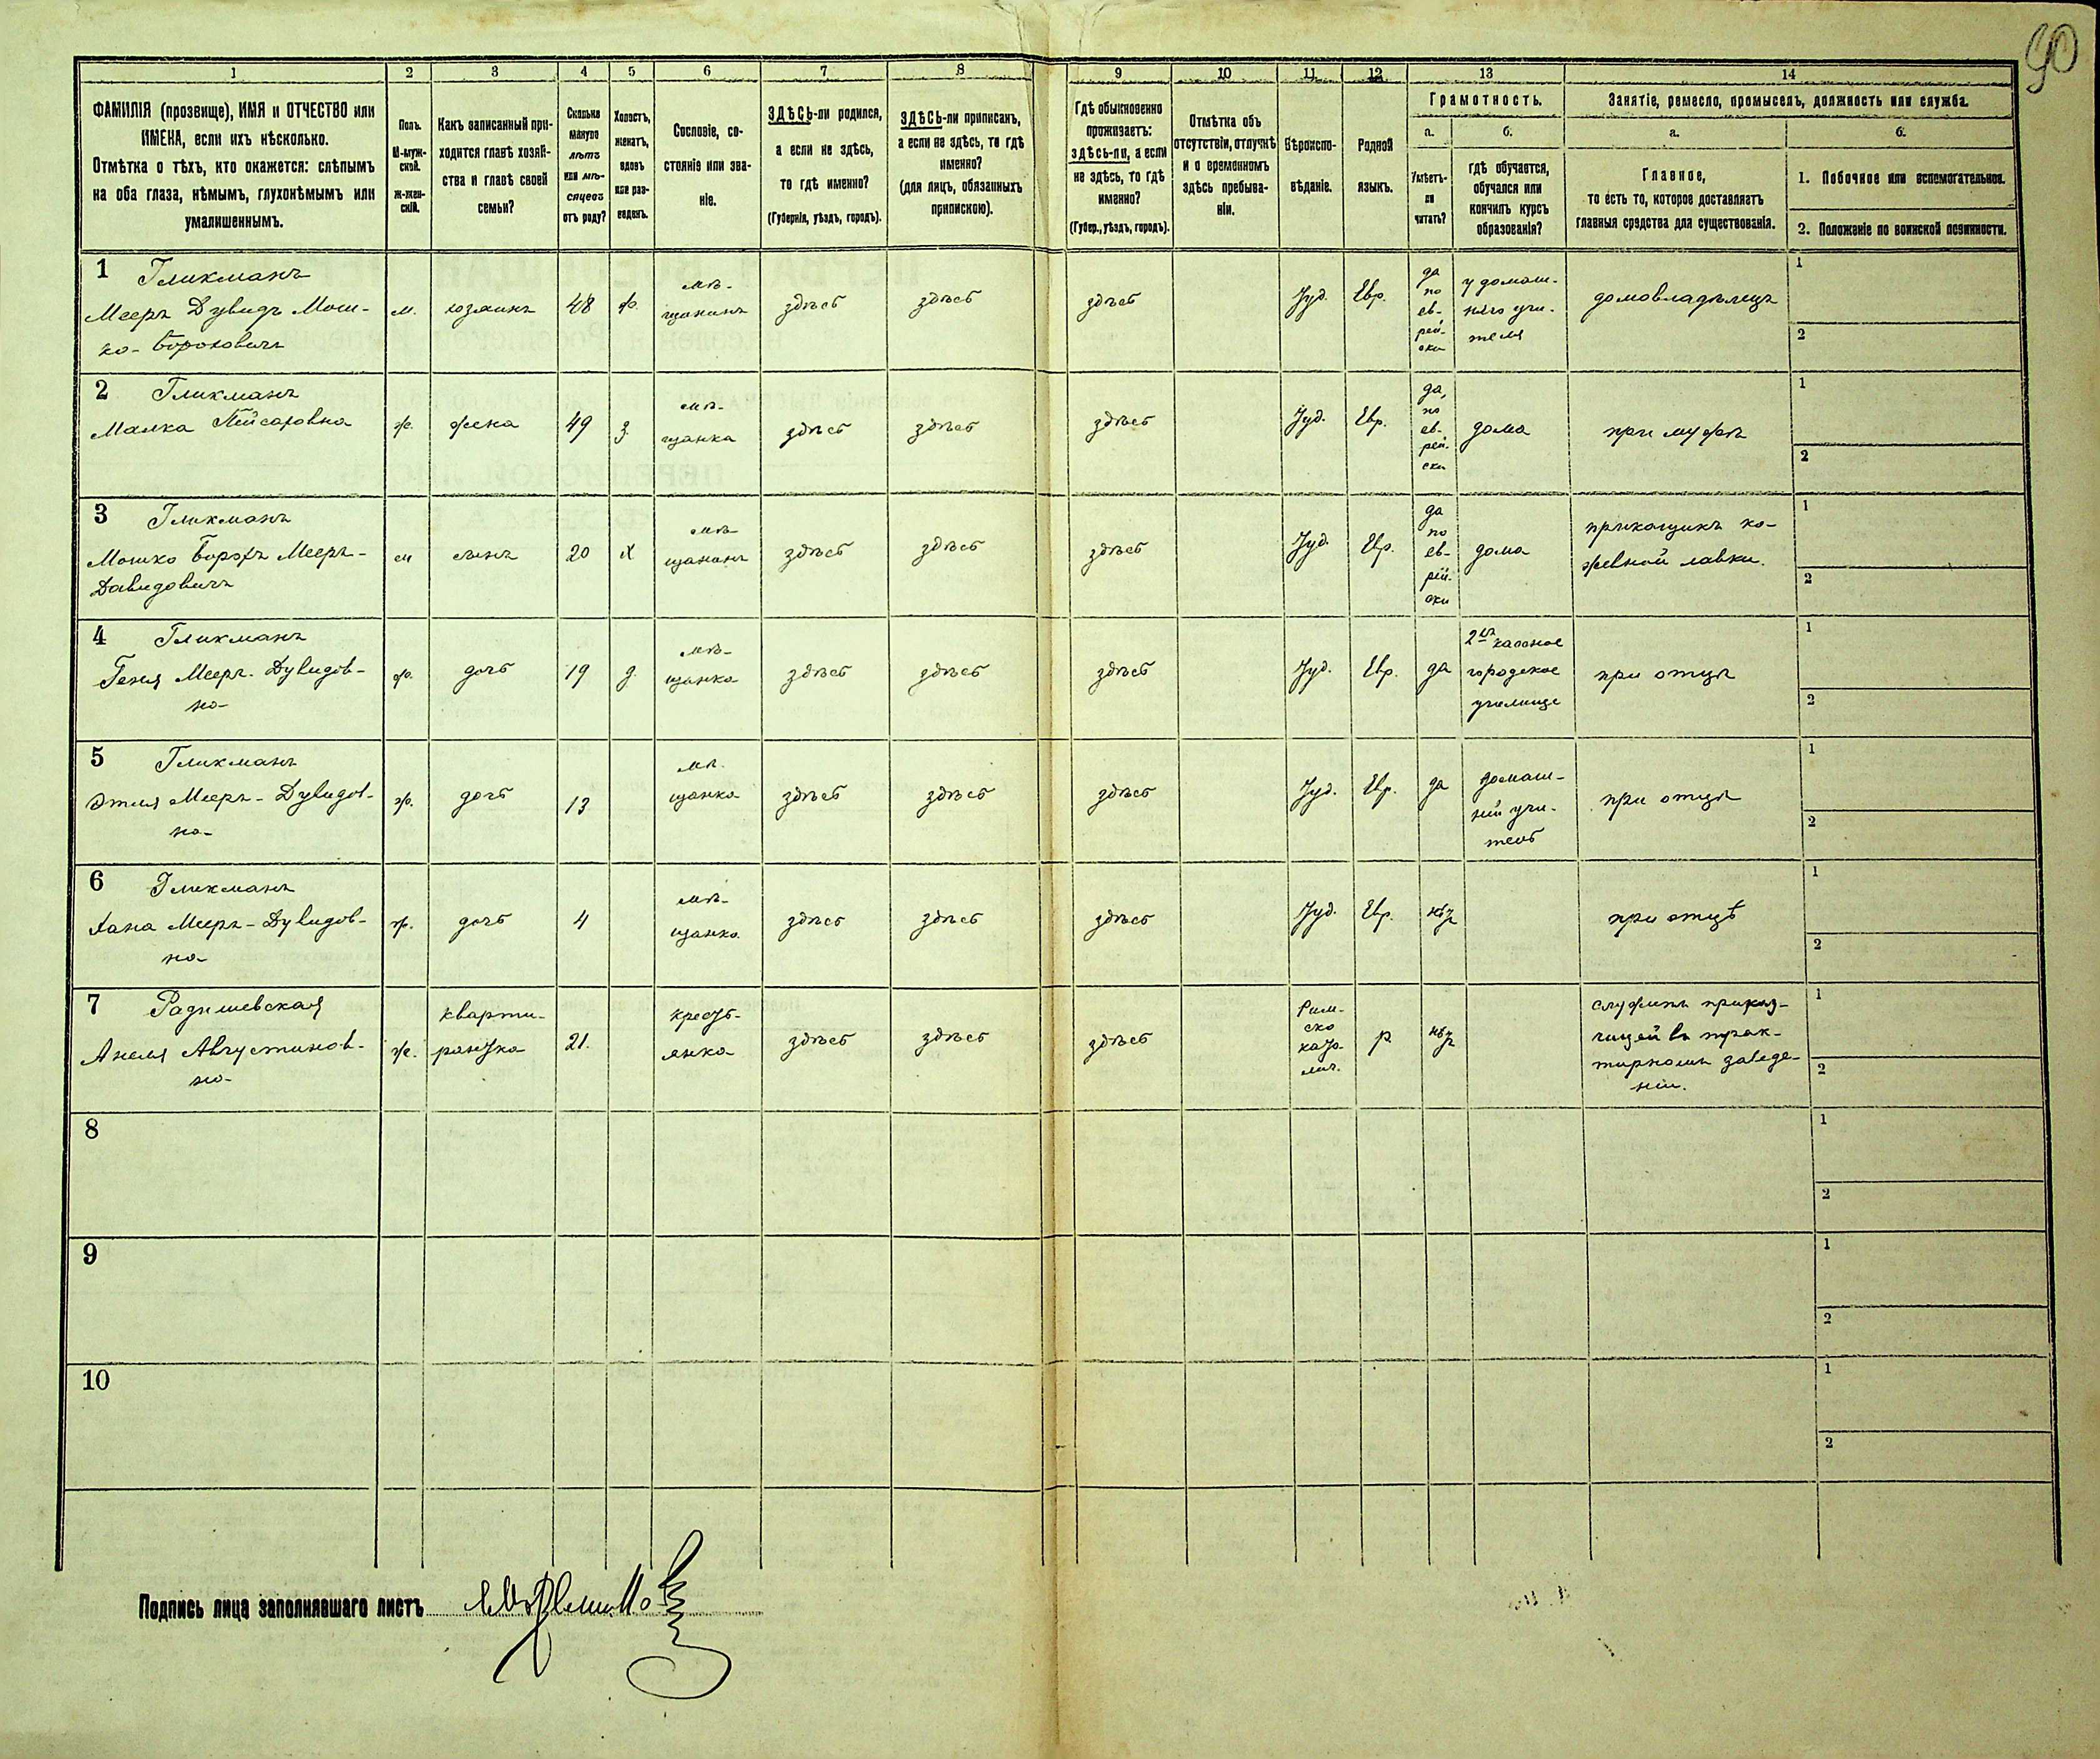 90
1 2 3 4 5 6 7 8 9 10 11 12 13 14
ФАМИЛІЯ (прозвище), ИМЯ и ОТЧЕСТВО или
ИМЕНА, если ихъ нѣсколько.
Отмѣтка о тѣхъ, кто окажется: слѣпымъ
на оба глаза, нѣмымъ, глухонѣмымъ или
умалишеннымъ.
Полъ.
М-муж-
ской.
ж-жен-
скій.
Какъ записанный при-
ходится главѣ хозяй-
ства и главѣ своей
семьи?
Сколько
минуло
лѣтъ
или мѣ-
сяцевъ
отъ роду?
Холостъ,
женатъ,
вдовъ
или раз-
веденъ.
Сословіе, со-
стояніе или зва-
ніе.
ЗДѢСЬ-ли родился,
а если не здѣсь,
то гдѣ именно?
(Губернія, уѣздъ, городъ).
ЗДѢСЬ-ли приписанъ,
а если не здѣсь, то гдѣ
именно?
(для лицъ, обязанныхъ
припискою).
Гдѣ обыкновенно
проживаетъ:
здѣсь-ли, а если
не здѣсь, то гдѣ
именно?
(Губер., уѣздъ, городъ).
Отмѣтка объ
отсутствіи, отлучкѣ
и о временномъ
здѣсь пребыва-
ніи.
Вѣроиспо-
вѣданіе.
Родной
языкъ.
Грамотность.
а.
Умѣетъ-
ли
читать?
б.
гдѣ обучается,
обучался или
кончилъ курсъ
образованія?
Занятіе, ремесло, промыселъ, должность или служба.
а.
Главное,
то есть то, которое доставляетъ
главныя средства для существованія.
б.
1. Побочное или вспомогательное.
2. Положеніе по воинской повинности.
1
Гликманъ
Мееръ Дувидъ Мош-
ко-Бороховичъ
м.
хозяинъ
48
ж.
мѣ-
щанинъ
здѣсь
здѣсь
здѣсь
Іуд.
Евр.
да
по
ев-
рей-
ски
у домаш-
няго учи-
теля
домовладѣлецъ
1
2
2
Гликманъ
Малка Пейсаховна
ж.
жена
49
з.
мѣ-
щанка
здѣсь
здѣсь
здѣсь
Іуд.
Евр.
да,
по
ев-
рей-
ски
дома
при мужѣ
1
2
3
Гликманъ
Мошко Борухъ Мееръ-
Давидовичъ
м
сынъ
20
х
мѣ-
щанинъ
здѣсь
здѣсь
здѣсь
Іуд.
Евр.
да
по
ев-
рей-
ски
дома
прикащикъ ко-
жевной лавки.
1
2
4
Гликманъ
Геня Мееръ-Дувидов-
на-
ж.
дочь
19
д.
мѣ-
щанка
здѣсь
здѣсь
здѣсь
Іуд.
Евр.
да
2хъ классное
городское
училище
при отцѣ
1
2
5
Гликманъ
Этля Мееръ-Дувидов-
на-
ж.
дочь
13
мѣ-
щанка
здѣсь
здѣсь
здѣсь
Іуд.
Евр.
да
домаш-
ній учи-
тель
при отцѣ
1
2
6
Гликманъ
Хана Мееръ-Дувидов-
на-
ж.
дочь
4
мѣ-
щанка
здѣсь
здѣсь
здѣсь
Іуд.
Евр.
нѣт
при отцѣ
1
2
7
Радишевская
Анеля Августинов-
на-
ж.
кварти-
рантка
21.
кресть-
янка
здѣсь
здѣсь
здѣсь
Рим-
ско
като-
лич.
р
нѣт
служитъ приказ-
чицей въ трак-
тирномъ заведе-
ніи.
1
2
8
1
2
9
1
2
10
1
2
Подпись лица заполнявшаго листъ